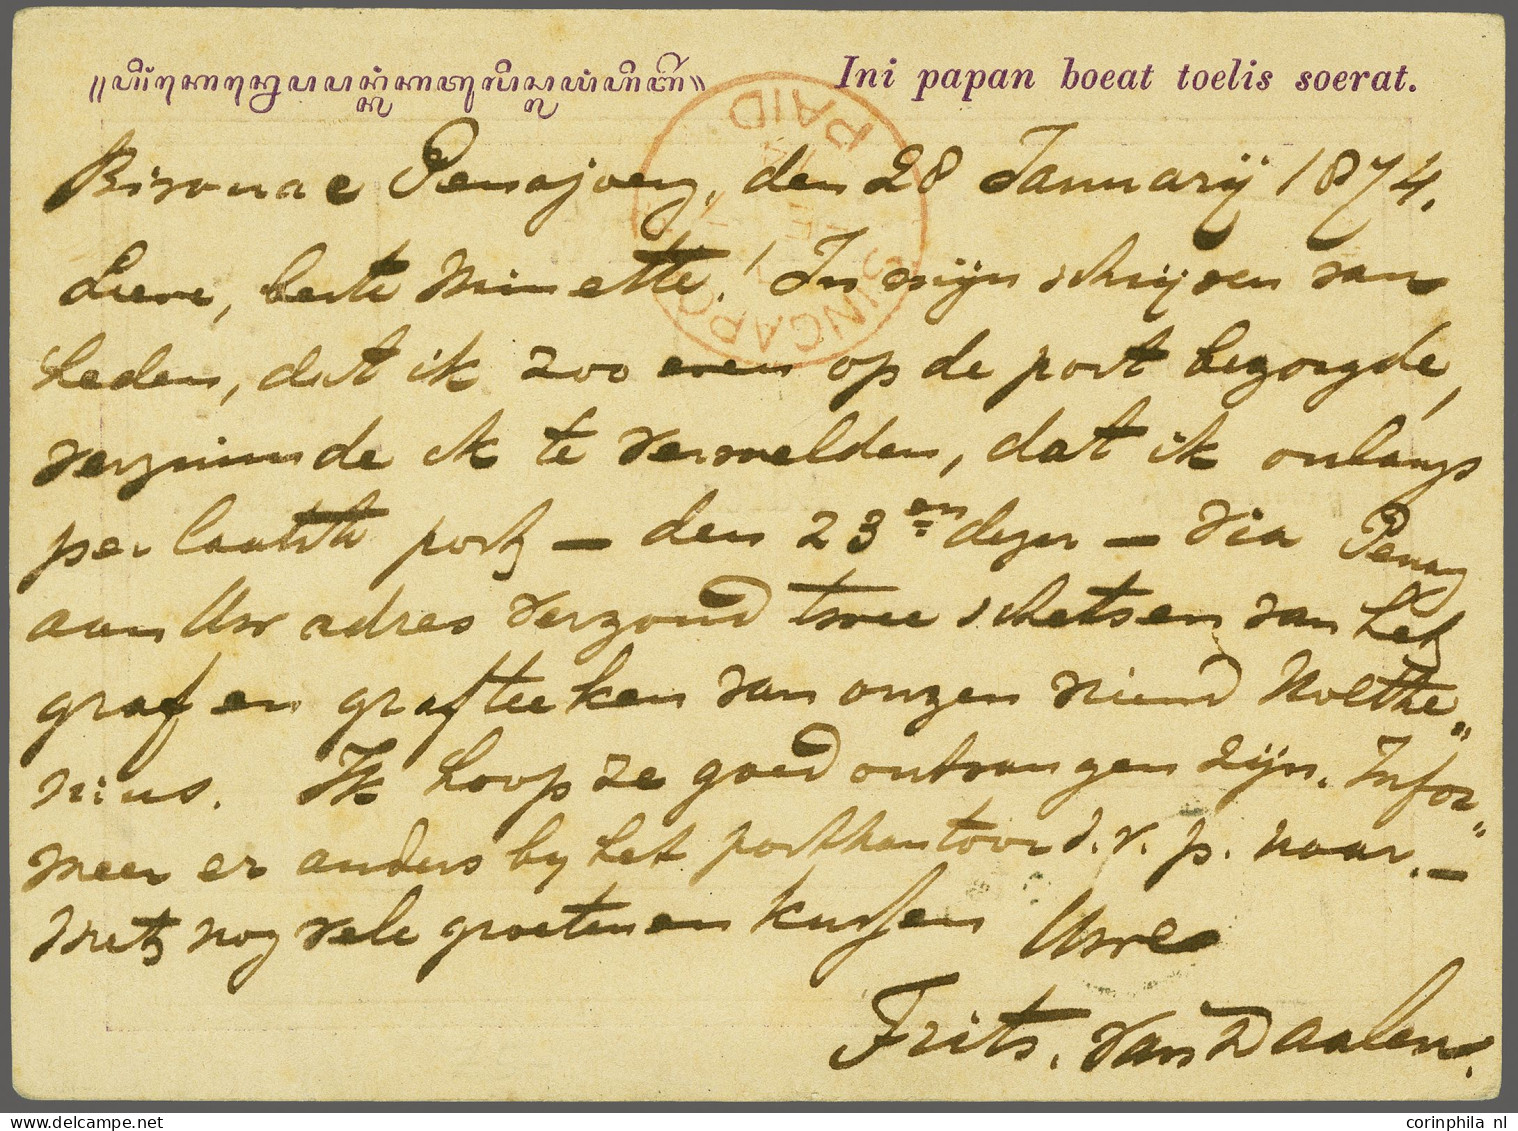 Ini papan boeat toelis soerat.
PAID
SINGAPO
den 28 Januarij 1874.
Lieve, beste Minette! In mijn schrijven van
heden, dat ik zoo even op de post bezorgde,
verzuimde ik te vermelden, dat ik onlangs
per laatste post – den 23en dezer – via Penang
aan Uw adres verzond twee schetsen van het
graf en grafteeken van onzen vriend Nolthe„
nius. Ik hoop ze goed ontvangen zijn. Infor„
meer er anders by het postkantoor d.r.p. naar. –
Met nog vele groeten en kussen Uwe
Frits. van Daalen.
corinphila nl